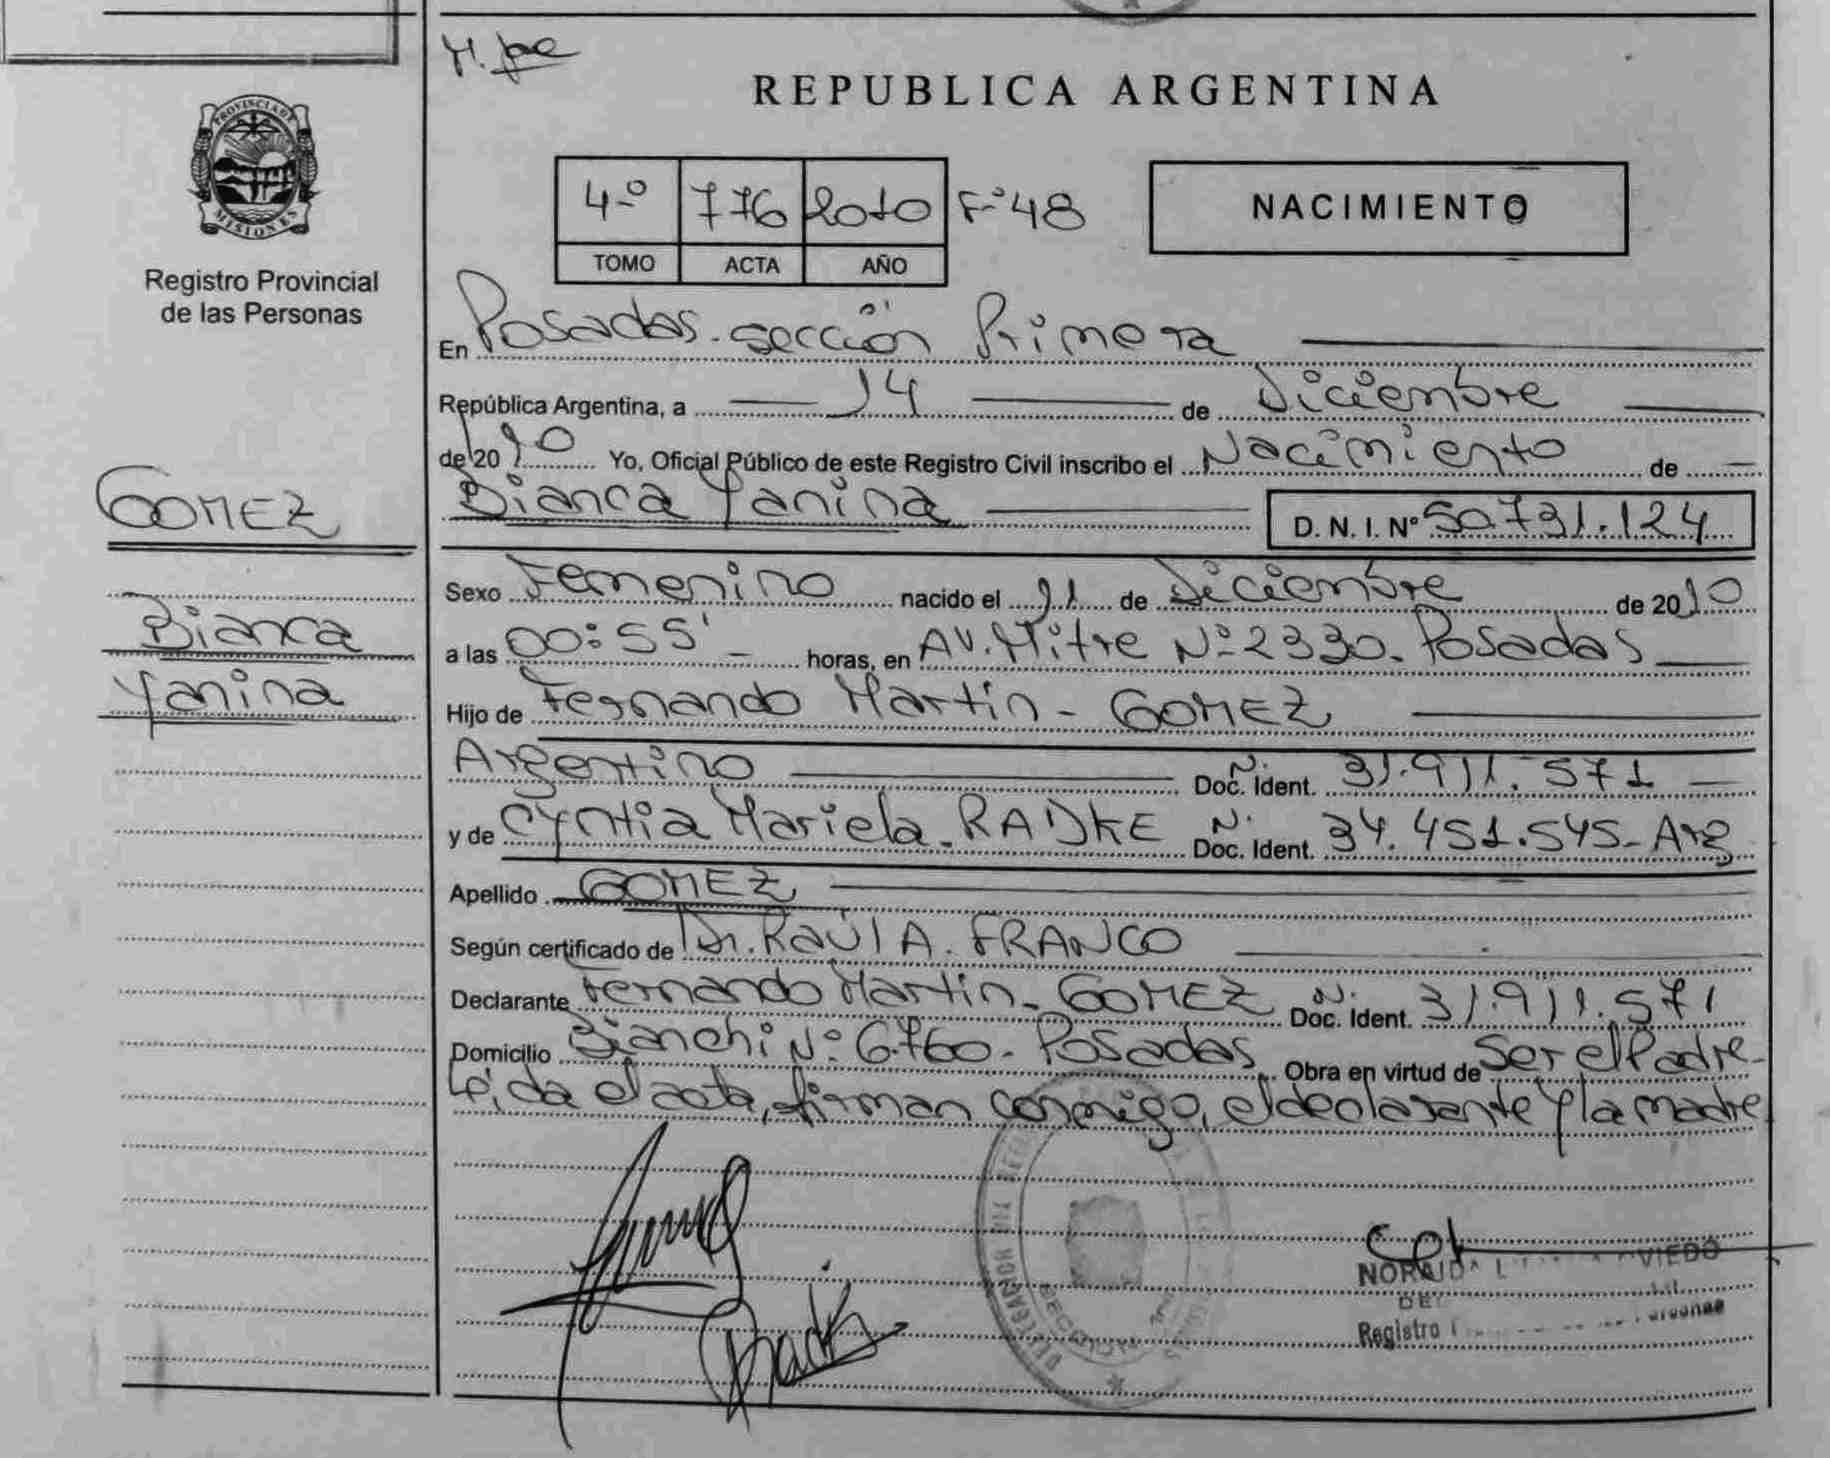 REPUBLICA ARGENTINA
PROVINCIA DE
MISIONES
Registro Provincial
de las Personas
4º 776 2010 Fº 48
TOMO ACTA AÑO
NACIMIENTO
En Posadas. sección Primera
República Argentina, a 14 de Diciembre
de 2010 Yo, Oficial Público de este Registro Civil inscribo el Nacimiento de
Bianca Yanina D. N. I. Nº 50.731.124
GOMEZ
Bianca
Yanina
Sexo Femenino nacido el 11 de Diciembre de 2010
a las 00:55' horas, en AV. Mitre Nº 2330. Posadas
Hijo de Fernando Martin - GOMEZ
Argentino N. Doc. Ident. 31.911.571
y de Cyntia Mariela. RADKE N. Doc. Ident. 34.451.545 - Arg
Apellido GOMEZ
Según certificado de Dr. Raúl A. FRANCO
Declarante Fernando Martin - GOMEZ N. Doc. Ident. 31.911.571
Domicilio Bianchi Nº 6760 - Posadas Obra en virtud de Ser el Padre -
Leida el acta, firman conmigo, el declarante y la madre
VIEDO
Registro